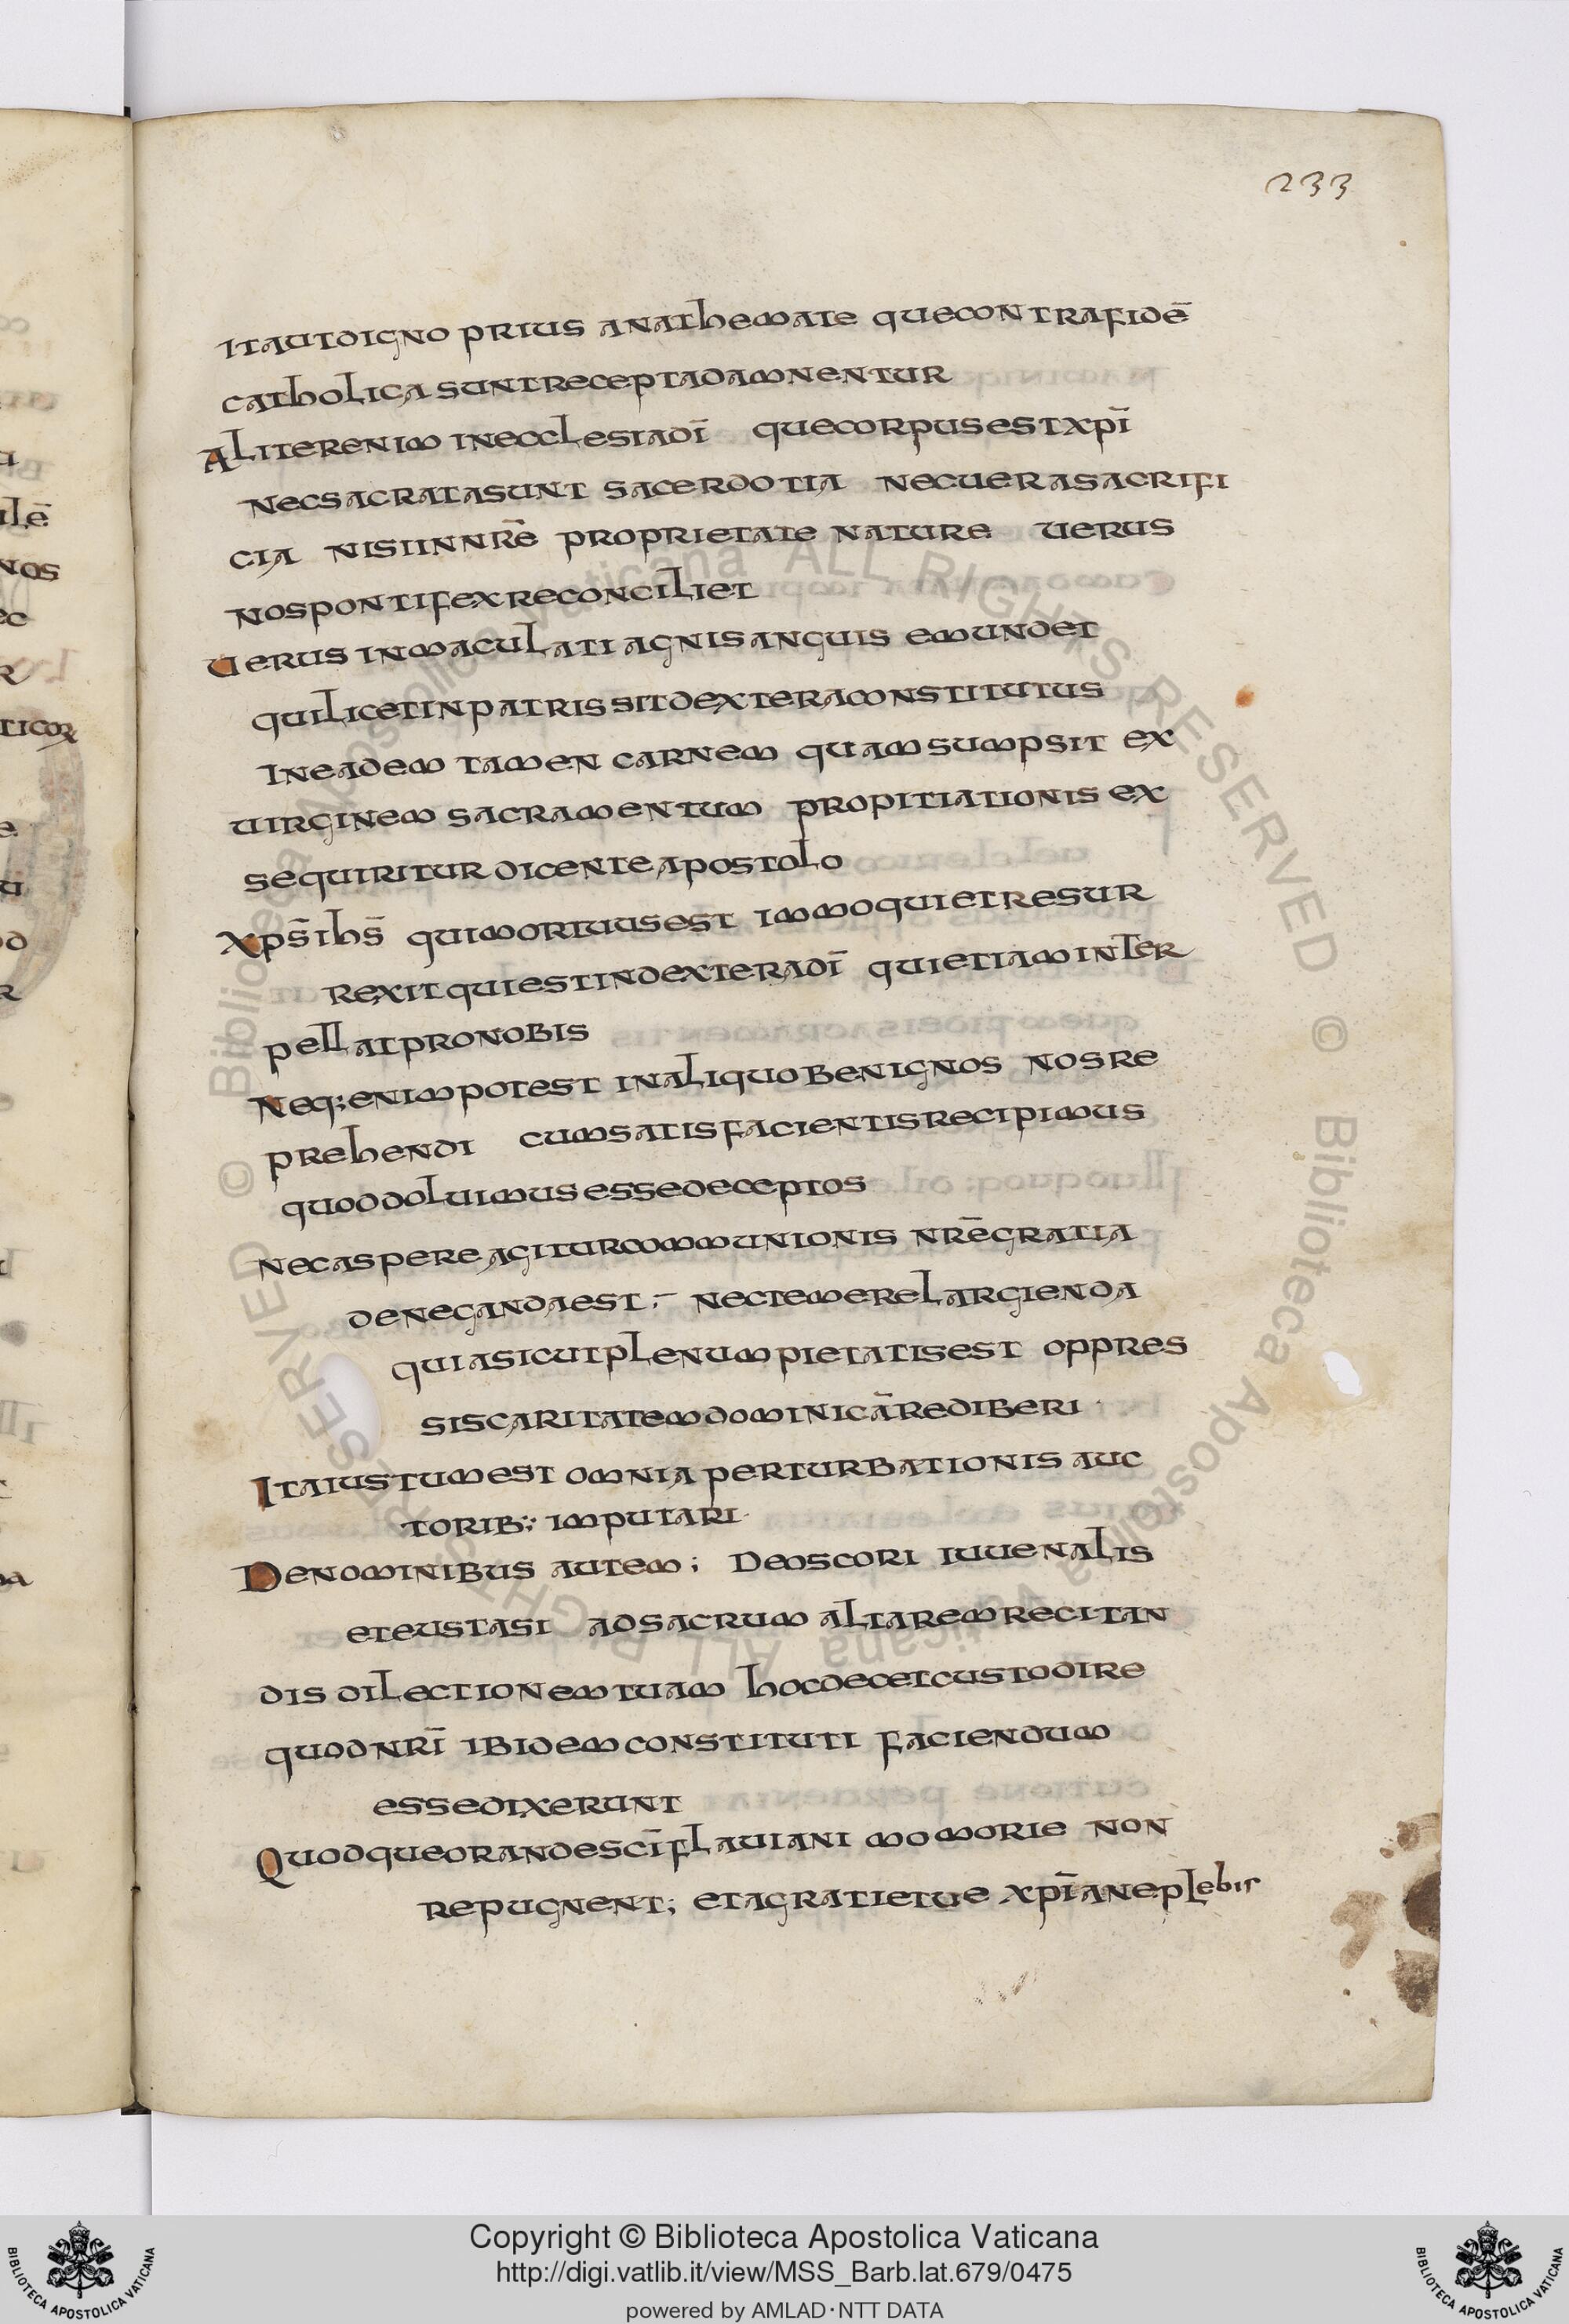 233
ITAUTDIGNO PRIUS ANAThEMATE QUECONTRAFIDĒ
CAThOLICA SUNTRECEPTADAMNENTUR
ALITERENIM INECCLESIADĪ QUECORPUSESTXPĪ
NECSACRATASUNT SACERDOTIA NECUERASACRIFI
CIA NISIINNRĒ PROPRIETATE NATURE UERUS
NOSPONTIFEXRECONCILIET
UERUS INMACULATI AGNISANGUIS EMUNDET
QUILICETINPATRISSITDEXTERACONSTITUTUS
INEADEM TAMEN CARNEM QUAMSUMPSIT EX
UIRGINEM SACRAMENTUM PROPITIATIONIS EX
SEQUIRITUR DICENTEAPOSTOLO
XPS̄IhS̄ QUIMORTUUSEST IMMOQUIETRESUR
REXIT QUIESTINDEXTERADĪ QUIETIAMINTER
PELLATPRONOBIS
NEQ;ENIMPOTEST INALIQUOBENIGNOS NOSRE
PREhENDI CUMSATISFACIENTISRECIPIMUS
QUODDOLUIMUSESSEDECEPTOS
NECASPERE AGITURCOMMUNIONIS NRĒGRATIA
DENEGANDAEST;– NECTEMERELARGIENDA
QUIASICUTPLENUMPIETATISEST OPPRES
SISCARITATEMDOMINICĀREDIBERI·
ITAIUSTUMEST OMNIA PERTURBATIONIS AUC
TORIB; IMPUTARI·
DENOMINIBUS AUTEM; DEOSCORI IUUENALIS
ETEUSTASI ADSACRUM ALTAREMRECITAN
DIS DILECTIONEMTUAM hOCDECETCUSTODIRE
QUODNRĪ IBIDEMCONSTITUTI FACIENDUM
ESSEDIXERUNT
QUODQUEORANDESCĪFLAUIANI MOMORIE NON
REPUGNENT; ETAGRATIETUE XPĪANEPLEBIS
Copyright © Biblioteca Apostolica Vaticana
http://digi.vatlib.it/view/MSS_Barb.lat.679/0475
powered by AMLAD·NTT DATA
BIBLIOTECA APOSTOLICA VATICANA
BIBLIOTECA APOSTOLICA VATICANA
© Biblioteca Apostolica Vaticana ALL RIGHTS RESERVED © Biblioteca Apostolica Vaticana ALL RIGHTS RESERVED